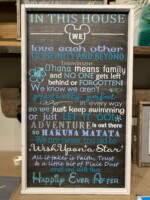 IN THIS HOUSE
WE
love each other
TO INFINITY AND BEYOND
Ohana means family
and NO ONE gets left
behind or FORGOTTEN!
We know we aren't
in every way
so we just keep swimming
or just LET IT GO
ADVENTURE is out there
so HAKUNA MATATA
Wish Upon a Star
All it takes is Faith, Trust
& a little bit of Pixie Dust
and we will live
Happily Ever After